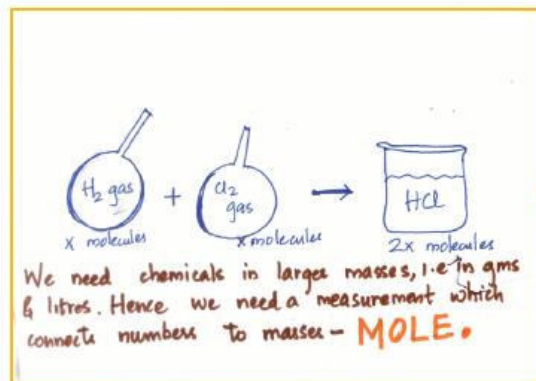 H2 gas + Cl2 gas → HCl
x molecules x molecules 2x molecules
We need chemicals in larger masses, i.e in gms
& litres. Hence we need a measurement which
connects numbers to masses - MOLE.